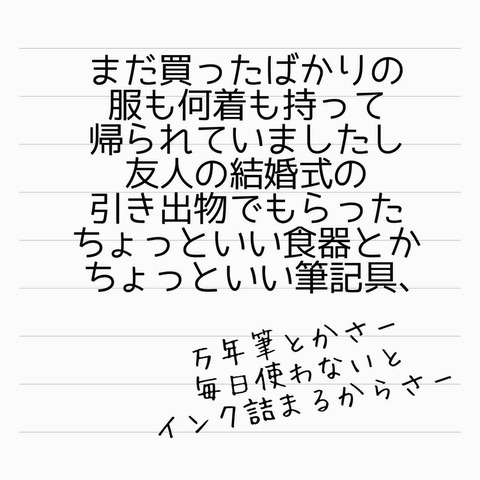 まだ買ったばかりの
服も何着も持って
帰られていましたし
友人の結婚式の
引き出物でもらった
ちょっといい食器とか
ちょっといい筆記具、
万年筆とかさー
毎日使わないと
インク詰まるからさー